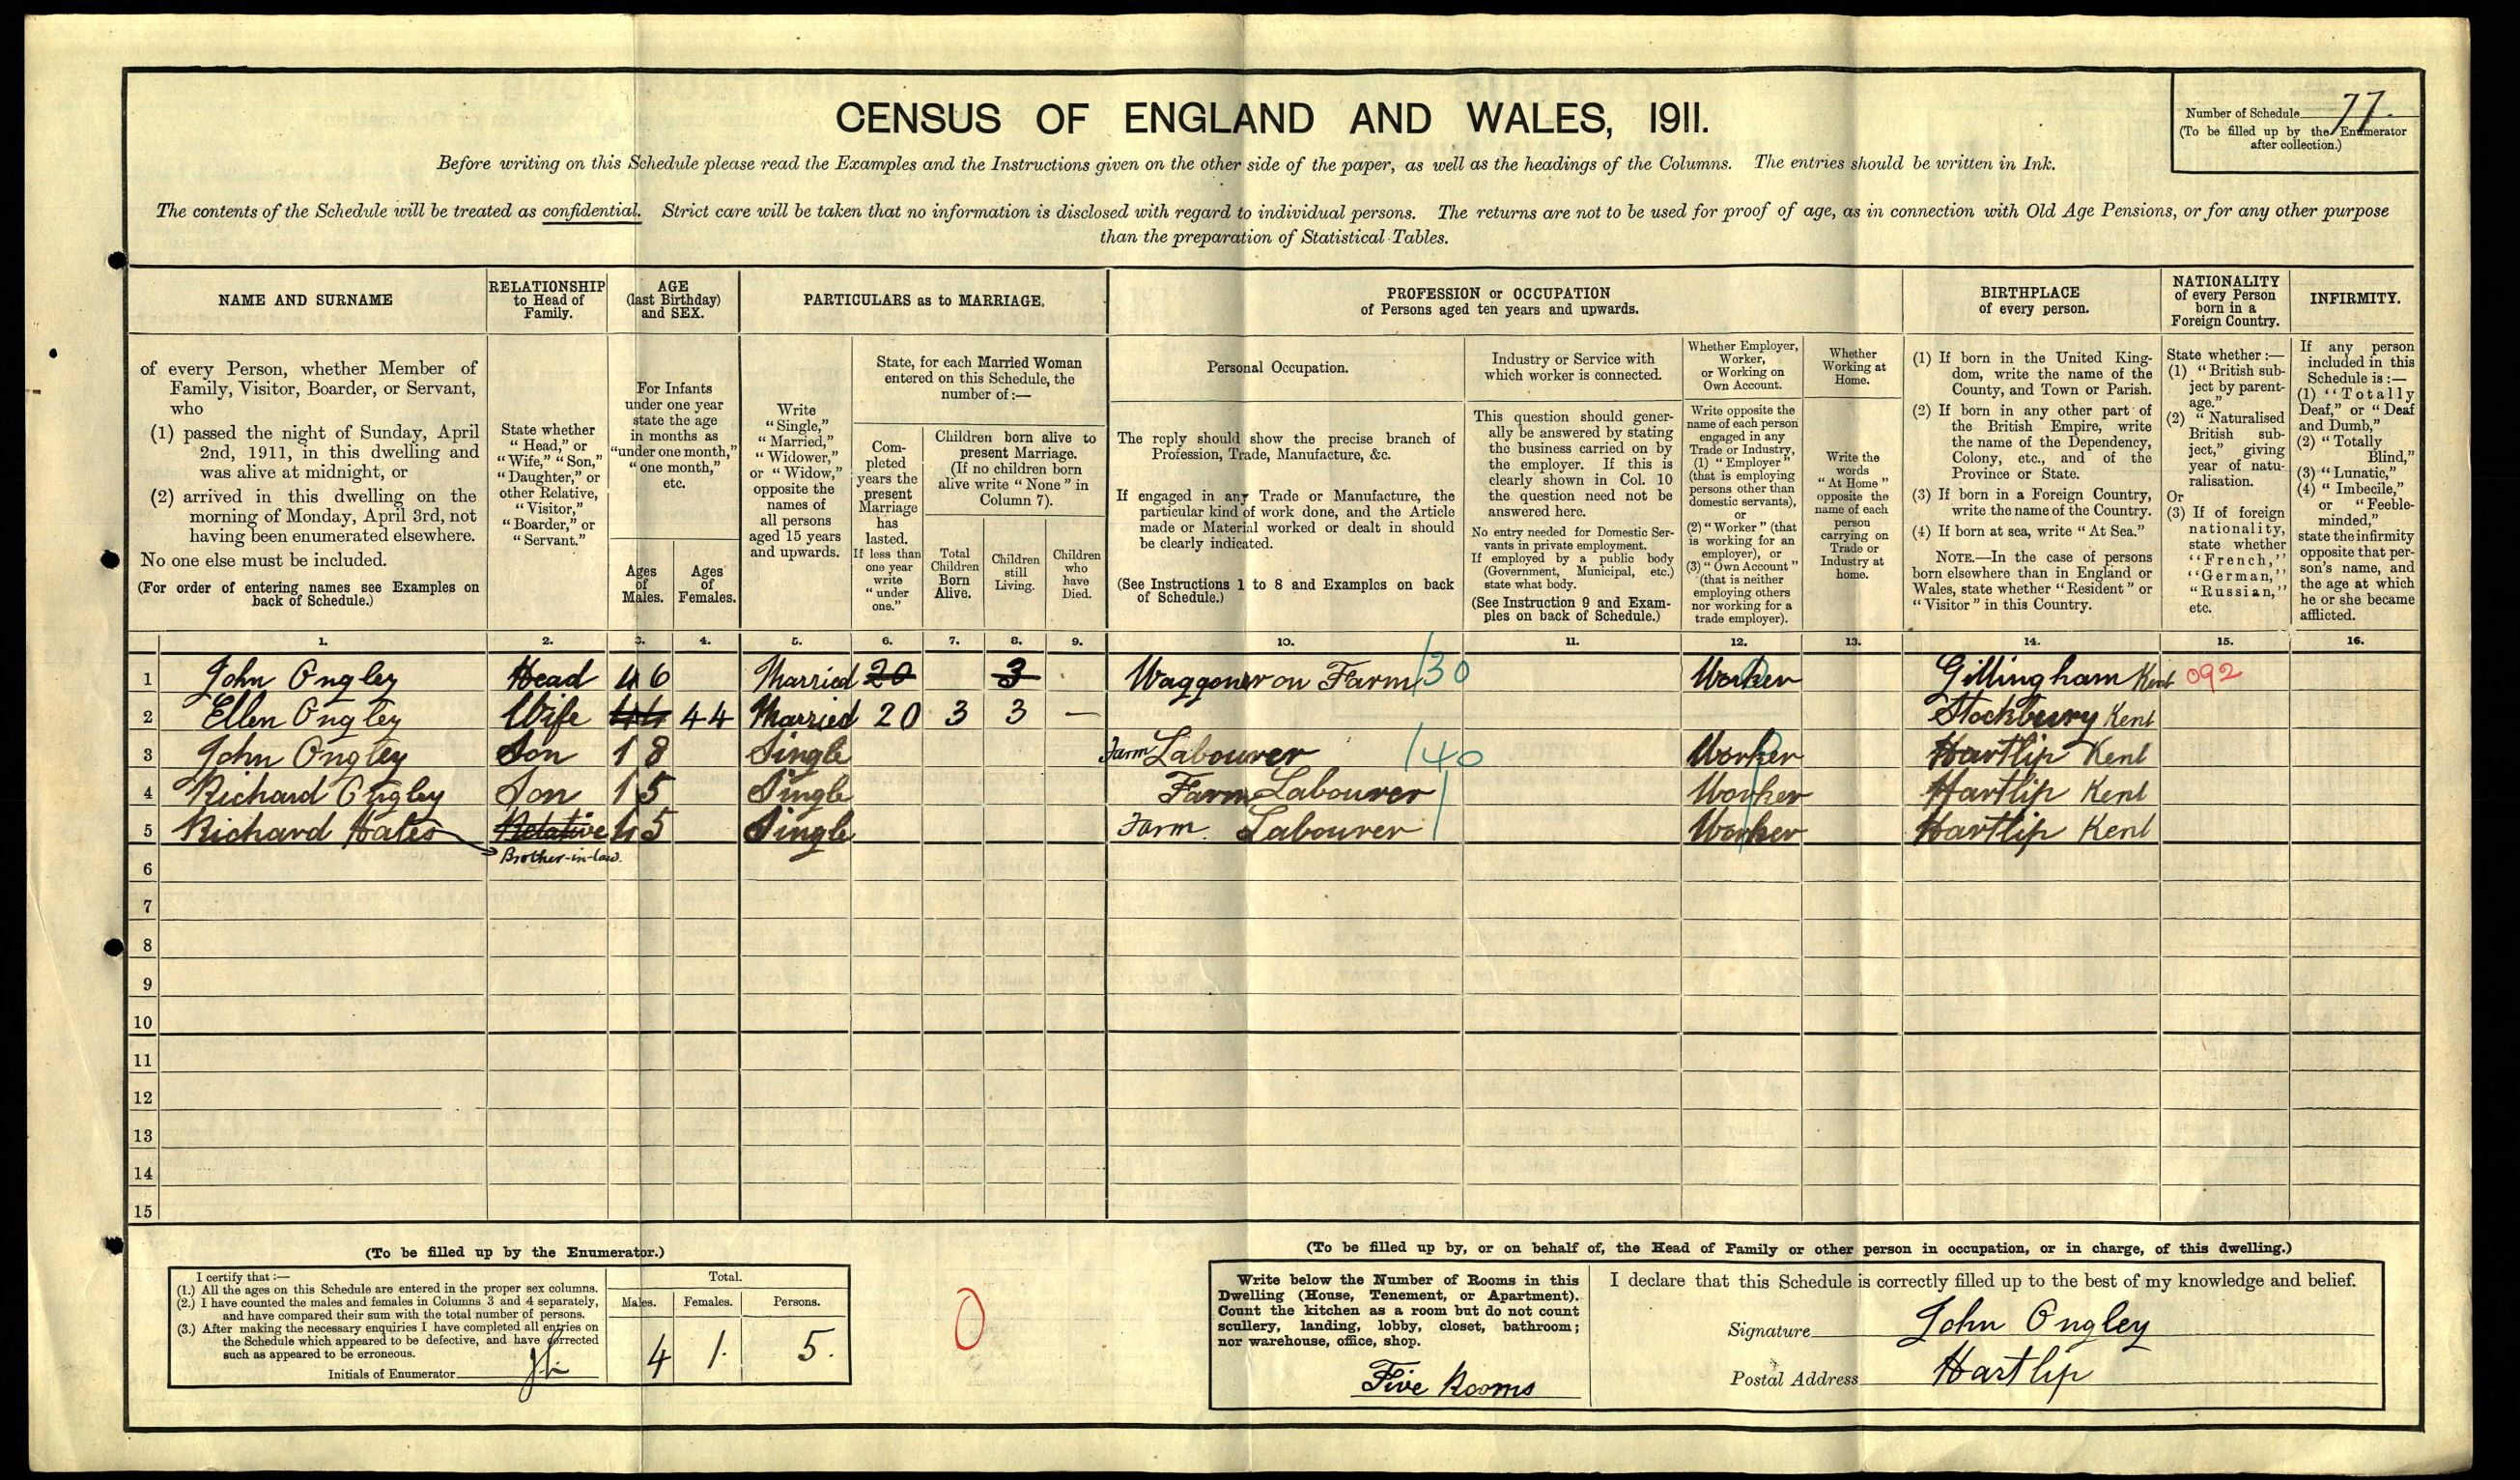 CENSUS OF ENGLAND AND WALES, 1911.
Number of Schedule 77.
(To be filled up by the Enumerator
after collection.)
Before writing on this Schedule please read the Examples and the Instructions given on the other side of the paper, as well as the headings of the Columns. The entries should be written in Ink.
The contents of the Schedule will be treated as confidential. Strict care will be taken that no information is disclosed with regard to individual persons. The returns are not to be used for proof of age, as in connection with Old Age Pensions, or for any other purpose
than the preparation of Statistical Tables.
NAME AND SURNAME
of every Person, whether Member of
Family, Visitor, Boarder, or Servant,
who
(1) passed the night of Sunday, April
2nd, 1911, in this dwelling and
was alive at midnight, or
(2) arrived in this dwelling on the
morning of Monday, April 3rd, not
having been enumerated elsewhere.
No one else must be included.
(For order of entering names see Examples on
back of Schedule.)
RELATIONSHIP
to Head of
Family.
State whether
"Head," or
"Wife," "Son,"
"Daughter," or
other Relative,
"Visitor,"
"Boarder," or
"Servant."
AGE
(last Birthday)
and SEX.
For Infants
under one year
state the age
in months as
"under one month,"
"one month,"
etc.
Ages
of
Males.
Ages
of
Females.
PARTICULARS as to MARRIAGE.
Write
"Single,"
"Married,"
"Widower,"
or "Widow,"
opposite the
names of
all persons
aged 15 years
and upwards.
State, for each Married Woman
entered on this Schedule, the
number of:—
Com-
pleted
years the
present
Marriage
has
lasted.
If less than
one year
write
"under
one."
Children born alive to
present Marriage.
(If no children born
alive write "None" in
Column 7).
Total
Children
Born
Alive.
Children
still
Living.
Children
who
have
Died.
PROFESSION or OCCUPATION
of Persons aged ten years and upwards.
Personal Occupation.
The reply should show the precise branch of
Profession, Trade, Manufacture, &c.
If engaged in any Trade or Manufacture, the
particular kind of work done, and the Article
made or Material worked or dealt in should
be clearly indicated.
(See Instructions 1 to 8 and Examples on back
of Schedule.)
Industry or Service with
which worker is connected.
This question should gener-
ally be answered by stating
the business carried on by
the employer. If this is
clearly shown in Col. 10
the question need not be
answered here.
No entry needed for Domestic Ser-
vants in private employment.
If employed by a public body
(Government, Municipal, etc.)
state what body.
(See Instruction 9 and Exam-
ples on back of Schedule.)
Whether Employer,
Worker,
or Working on
Own Account.
Write opposite the
name of each person
engaged in any
Trade or Industry,
(1) "Employer"
(that is employing
persons other than
domestic servants),
or
(2) "Worker" (that
is working for an
employer), or
(3) "Own Account"
(that is neither
employing others
nor working for a
trade employer).
Whether
Working at
Home.
Write the
words
"At Home"
opposite the
name of each
person
carrying on
Trade or
Industry at
home.
BIRTHPLACE
of every person.
(1) If born in the United King-
dom, write the name of the
County, and Town or Parish.
(2) If born in any other part of
the British Empire, write
the name of the Dependency,
Colony, etc., and of the
Province or State.
(3) If born in a Foreign Country,
write the name of the Country.
(4) If born at sea, write "At Sea."
NOTE.—In the case of persons
born elsewhere than in England or
Wales, state whether "Resident" or
"Visitor" in this Country.
NATIONALITY
of every Person
born in a
Foreign Country.
State whether:—
(1) "British sub-
ject by parent-
age."
(2) "Naturalised
British sub-
ject," giving
year of natu-
ralisation.
Or
(3) If of foreign
nationality,
state whether
"French,"
"German,"
"Russian,"
etc.
INFIRMITY.
If any person
included in this
Schedule is:—
(1) "Totally
Deaf," or "Deaf
and Dumb,"
(2) "Totally
Blind,"
(3) "Lunatic,"
(4) "Imbecile,"
or "Feeble-
minded,"
state the infirmity
opposite that per-
son's name, and
the age at which
he or she became
afflicted.
1. 2. 3. 4. 5. 6. 7. 8. 9. 10. 11. 12. 13. 14. 15. 16.
1 John Ongley Head 46 Married 20 3 Waggoner on Farm 130 Worker Gillingham Kent 092
2 Ellen Ongley Wife 44 44 Married 20 3 3 — Stockbury Kent
3 John Ongley Son 18 Single Farm Labourer 140 Worker Hartlip Kent
4 Richard Ongley Son 15 Single Farm Labourer Worker Hartlip Kent
5 Richard Hales Relative 45 Single Farm Labourer Worker Hartlip Kent
Brother-in-law.
6
7
8
9
10
11
12
13
14
15
(To be filled up by the Enumerator.)
I certify that:—
(1.) All the ages on this Schedule are entered in the proper sex columns.
(2.) I have counted the males and females in Columns 3 and 4 separately,
and have compared their sum with the total number of persons.
(3.) After making the necessary enquiries I have completed all entries on
the Schedule which appeared to be defective, and have corrected
such as appeared to be erroneous.
Initials of Enumerator
Total.
Males. Females. Persons.
4 1. 5.
0
(To be filled up by, or on behalf of, the Head of Family or other person in occupation, or in charge, of this dwelling.)
Write below the Number of Rooms in this
Dwelling (House, Tenement, or Apartment).
Count the kitchen as a room but do not count
scullery, landing, lobby, closet, bathroom;
nor warehouse, office, shop.
Five Rooms
I declare that this Schedule is correctly filled up to the best of my knowledge and belief.
Signature John Ongley
Postal Address Hartlip